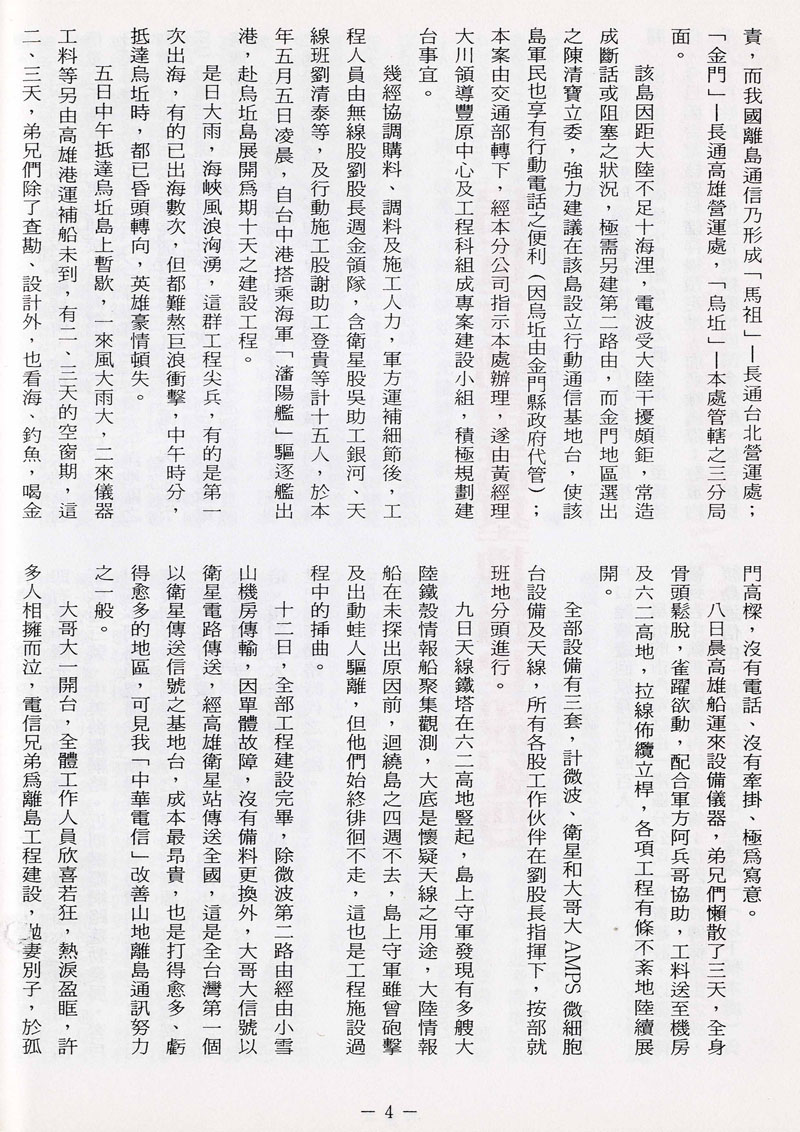 責，而我國離島通信乃形成「馬祖」—長通台北營運處；
「金門」—長通高雄營運處，「烏坵」—本處管轄之三分局
面。
該島因距大陸不足十海浬，電波受大陸干擾頗鉅，常造
成斷話或阻塞之狀況，極需另建第二路由，而金門地區選出
之陳清寶立委，強力建議在該島設立行動通信基地台，使該
島軍民也享有行動電話之便利（因烏坵由金門縣政府代管）；
本案由交通部轉下，經本分公司指示本處辦理，遂由黃經理
大川領導豐原中心及工程科組成專案建設小組，積極規劃建
台事宜。
幾經協調購料、調料及施工人力，軍方運補細節後，工
程人員由無線股劉股長週金領隊，含衛星股吳助工銀河、天
線班劉清泰等，及行動施工股謝助工登貴等計十五人，於本
年五月五日凌晨，自台中港搭乘海軍「瀋陽艦」驅逐艦出
港，赴烏坵島展開為期十天之建設工程。
是日大雨，海峽風浪洶湧，這群工程尖兵，有的是第一
次出海，有的已出海數次，但都難熬巨浪衝擊，中午時分，
抵達烏坵時，都已昏頭轉向，英雄豪情頓失。
五日中午抵達烏坵島上暫歇，一來風大雨大，二來儀器
工料等另由高雄港運補船未到，有二、三天的空窗期，這
二、三天，弟兄們除了查勘、設計外，也看海、釣魚，喝金
門高樑，沒有電話、沒有牽掛、極為寫意。
八日晨高雄船運來設備儀器，弟兄們懶散了三天，全身
骨頭鬆脫，雀躍欲動，配合軍方阿兵哥協助，工料送至機房
及六二高地，拉線佈纜立桿，各項工程有條不紊地陸續展
開。
全部設備有三套，計微波、衛星和大哥大 AMPS 微細胞
台設備及天線，所有各股工作伙伴在劉股長指揮下，按部就
班地分頭進行。
九日天線鐵塔在六二高地豎起，島上守軍發現有多艘大
陸鐵殼情報船聚集觀測，大底是懷疑天線之用途，大陸情報
船在未探出原因前，迴繞島之四週不去，島上守軍雖曾砲擊
及出動蛙人驅離，但他們始終徘徊不走，這也是工程施設過
程中的揷曲。
十二日，全部工程建設完畢，除微波第二路由經由小雪
山機房傳輸，因單體故障，沒有備料更換外，大哥大信號以
衛星電路傳送，經高雄衛星站傳送全國，這是全台灣第一個
以衛星傳送信號之基地台，成本最昂貴，也是打得愈多、虧
得愈多的地區，可見我「中華電信」改善山地離島通訊努力
之一般。
大哥大一開台，全體工作人員欣喜若狂，熱淚盈眶，許
多人相擁而泣，電信兄弟為離島工程建設，拋妻別子，於孤
— 4 —